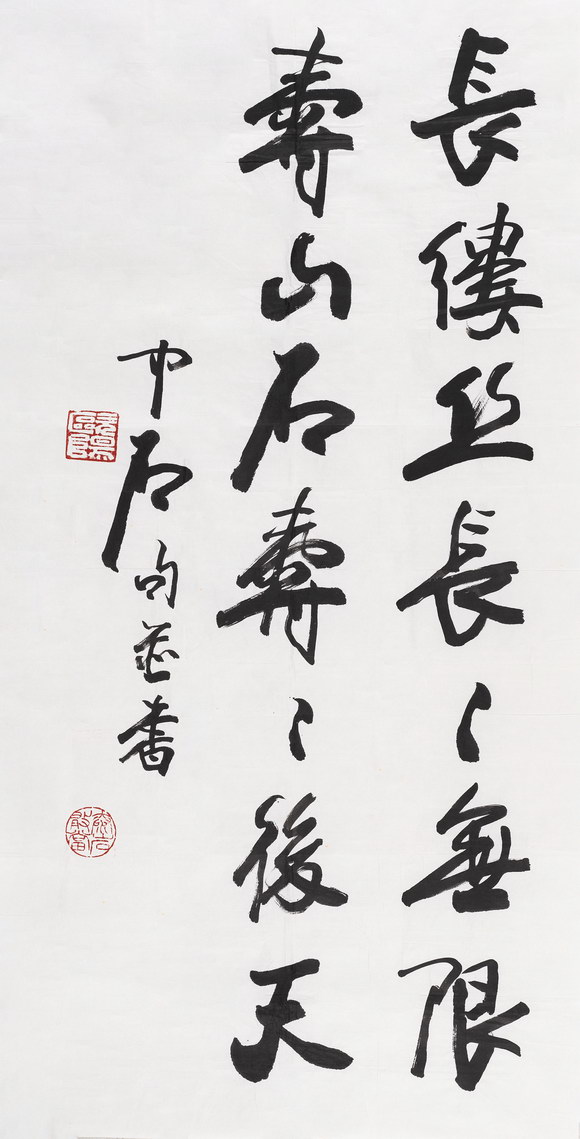 長縷丝長〻無限
壽山石壽〻後天
中石句並書